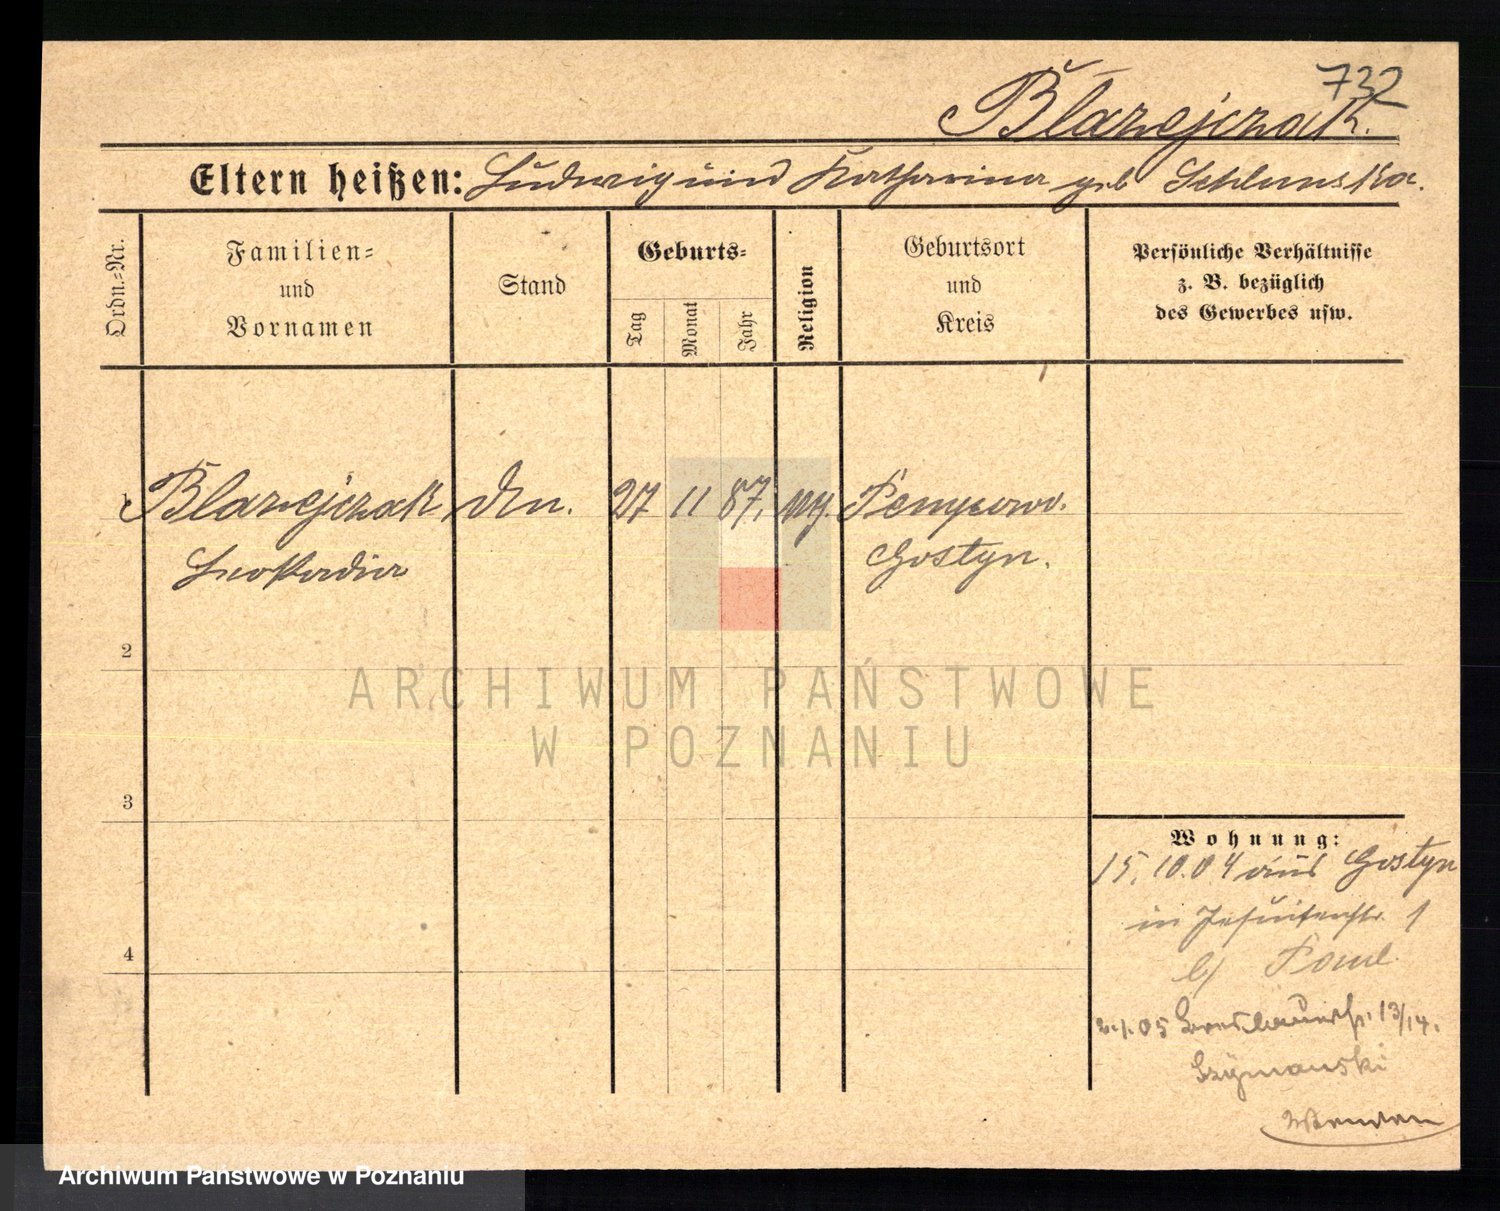 732
Błażejczak.
Eltern heißen: Ludwig und Katharina geb
Ordn.-Nr.
Familien-
und
Vornamen
Stand
Geburts-
Tag
Monat
Jahr
Religion
Geburtsort
und
Kreis
Persönliche Verhältnisse
z. B. bezüglich
des Gewerbes usw.
1 Blazejczak 27 11 87. Pempowo.
Leokadia Gostyn.
2
3
4
ARCHIWUM PAŃSTWOWE
W POZNANIU
Wohnung:
15.10.04 aus Gostyn
in Jesuitenstr. 1
b/
2.1.05 Breslauerstr. 13/14.
Szymanski
Wenden
Archiwum Państwowe w Poznaniu